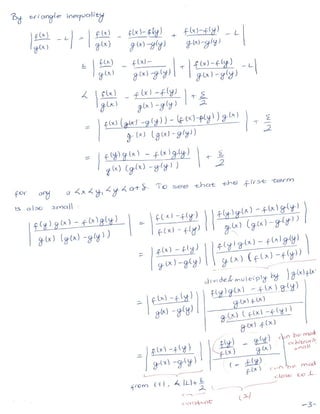 By triangle inequality
| f(x)/g(x) - L | = | f(x)/g(x) - (f(x)-f(y))/(g(x)-g(y)) + (f(x)-f(y))/(g(x)-g(y)) - L |
≤ | f(x)/g(x) - (f(x)-)/(g(x)-g(y)) | + | (f(x)-f(y))/(g(x)-g(y)) - L |
< | f(x)/g(x) - (f(x)-f(y))/(g(x)-g(y)) | + ε/2
= | (f(x)(g(x)-g(y)) - (f(x)-f(y))g(x))/(g(x)(g(x)-g(y))) | + ε/2
= | (f(y)g(x) - f(x)g(y))/(g(x)(g(x)-g(y))) | + ε/2
for any a<x<y, y<a+δ. To see that the first term
is also small
| (f(y)g(x) - f(x)g(y))/(g(x)(g(x)-g(y))) | = | (f(x)-f(y))/(f(x)-f(y)) | | (f(y)g(x) - f(x)g(y))/(g(x)(g(x)-g(y))) |
= | (f(x)-f(y))/(g(x)-g(y)) | | (f(y)g(x) - f(x)g(y))/(g(x)(f(x)-f(y))) |
divide & multiply by g(x)f(x)
= | (f(x)-f(y))/(g(x)-g(y)) | | ((f(y)g(x) - f(x)g(y))/(g(x)f(x)))/((g(x)(f(x)-f(y)))/(g(x)f(x))) |
= | (f(x)-f(y))/(g(x)-g(y)) | | (f(y)/f(x) - g(y)/g(x))/(1 - f(y)/f(x)) |
can be made
small
can be made
close to 1.
from (1), < |L|+ε/2
constant
(2)
-3-